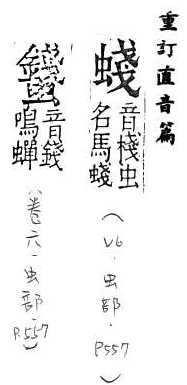 重訂直音篇
蝬音棧虫名馬蝬
音錢鳴蟬
(V6.虫部.P557)
(卷六.虫部.P.557)